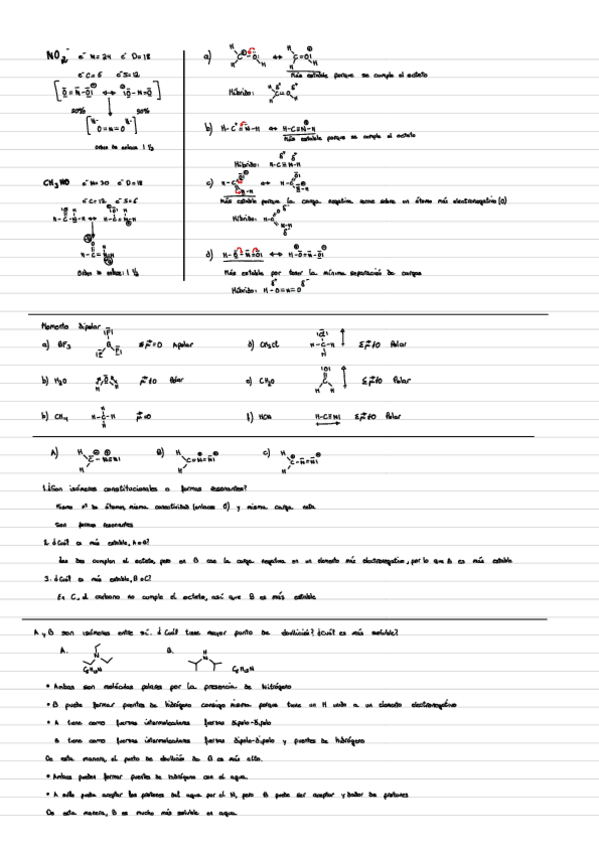 NO₂⁻ e⁻ N=24 e⁻ D=18
e⁻ C=6 e⁻ S=12
50% 50%
Orden de enlace 1 ½
a)
Más estable porque se cumple el octeto
Híbrido:
b) H-C=N-H ↔ H-C≡N-H
Más estable porque se cumple el octeto
Híbrido: H-C≡N-H
CH₃NO e⁻ N=30 e⁻ D=18
e⁻ C=12 e⁻ S=6
Orden de enlace: 1 ½
c)
Más estable porque la carga negativa recae sobre un átomo más electronegativo (O)
Híbrido:
d)
Más estable por tener la mínima separación de cargas
Híbrido: H-O=N=O
Momento dipolar
a) BF₃ Σμ=0 Apolar
d) CH₃Cl Σμ≠0 Polar
b) H₂O μ≠0 Polar
e) CH₂O Σμ≠0 Polar
b) CH₄ μ=0
f) HCN H-C≡N Σμ≠0 Polar
A) B) C)
1. ¿Son isómeros constitucionales o formas resonantes?
Mismo nº de átomos, misma conectividad (enlaces σ) y misma carga neta
Son formas resonantes
2. ¿Cuál es más estable, A o B?
Las dos cumplen el octeto, pero en B cae la carga negativa en un elemento más electronegativo, por lo que B es más estable
3. ¿Cuál es más estable, B o C?
En C, el carbono no cumple el octeto, así que B es más estable
A y B son isómeros entre sí. ¿Cuál tiene mayor punto de ebullición? ¿Cuál es más soluble?
A. B.
C₆H₁₅N C₆H₁₅N
• Ambas son moléculas polares por la presencia de Nitrógeno
• B puede formar puentes de hidrógeno consigo misma porque tiene un H unido a un elemento electronegativo
• A tiene como fuerzas intermoleculares fuerzas dipolo-dipolo
B tiene como fuerzas intermoleculares fuerzas dipolo-dipolo y puentes de hidrógeno
De esta manera, el punto de ebullición de B es más alto.
• Ambas pueden formar puentes de hidrógeno con el agua.
• A sólo puede aceptar los protones del agua por el N, pero B puede ser aceptor y dador de protones
De esta manera, B es mucho más soluble en agua